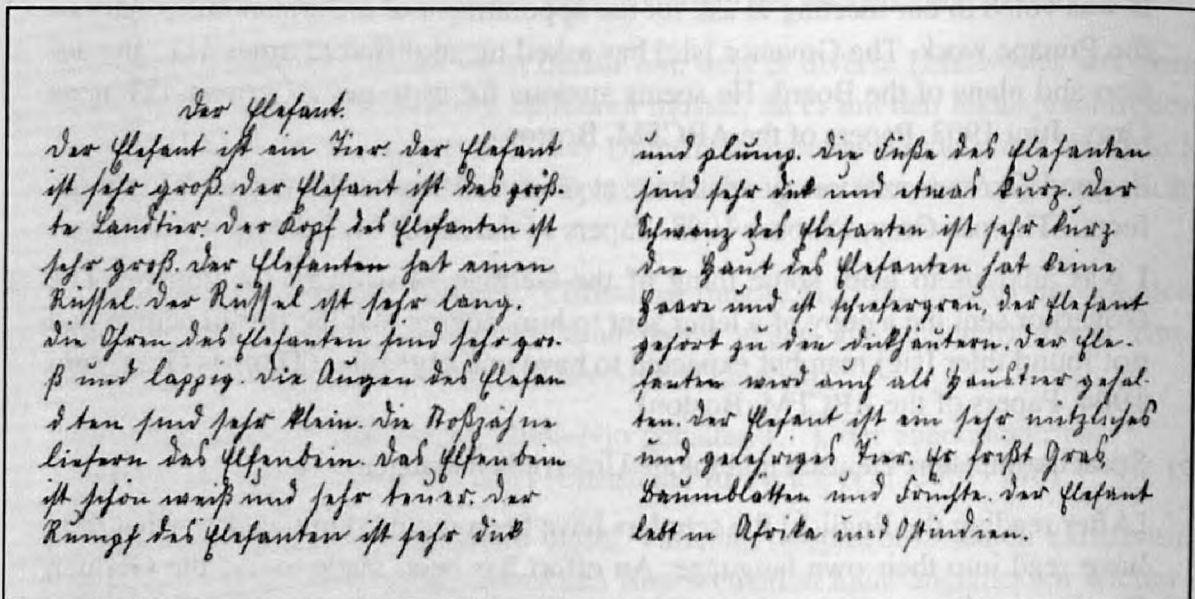 Der Elefant.
Der Elefant ist ein Tier. der Elefant
ist sehr groß. Der Elefant ist das größ-
te Landtier. Der Kopf des Elefanten ist
sehr groß. Der Elefanten hat einen
Rüssel. Der Rüssel ist sehr lang.
die Ohren des Elefanten sind sehr gro-
ß und lappig. Die Augen des Elefan
d. ten sind sehr klein. Die Stoßzähne
liefern das Elfenbein. Das Elfenbein
ist schön weiß und sehr teuer. Der
Rumpf des Elefanten ist sehr dick
und plump. Die Füße des Elefanten
sind sehr dick und etwas kurz. Der
Schwanz des Elefanten ist sehr kurz
Die Haut des Elefanten hat keine
Haare und ist schiefergrau. Der Elefant
gehört zu den Dickhäutern. Der Ele-
fanten wird auch als Haustier gehal-
ten. Der Elefant ist ein sehr nützliches
und gelehriges Tier. Er frißt Gras
Baumblätter und Früchte. Der Elefant
lebt in Afrika und Ostindien.